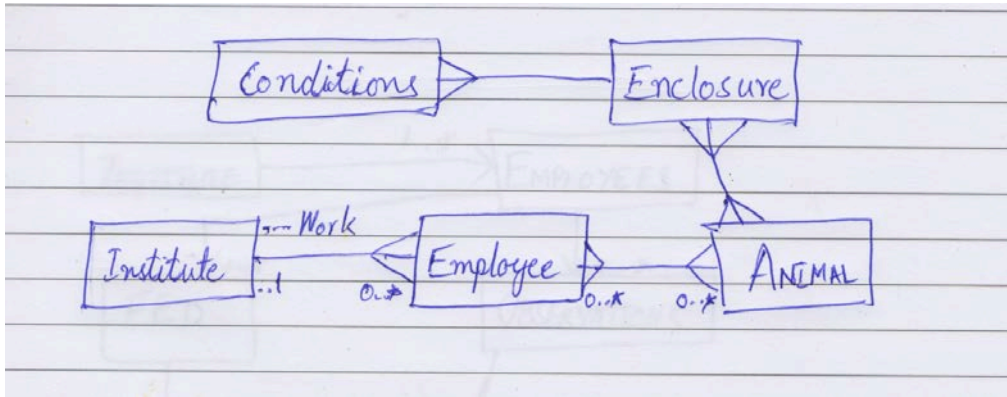 Conditions
Enclosure
Work
Institute
..1
0..*
Employee
0..*
0..*
ANIMAL